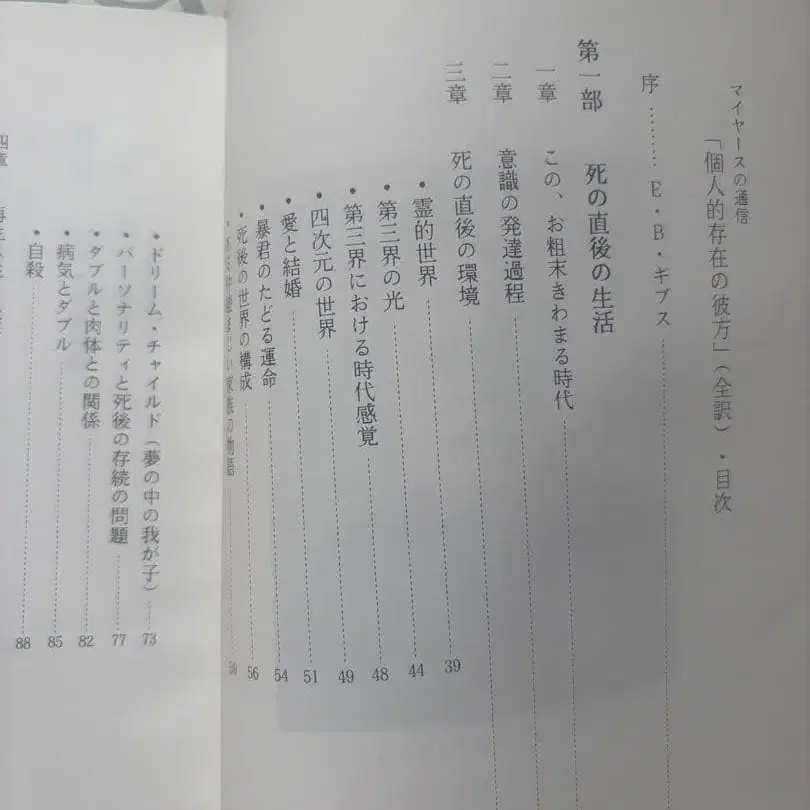 マイヤースの通信
「個人的存在の彼方」(全訳)・目次
序………E・B・ギブス
第一部 死の直後の生活
一章 この、お粗末きわまる時代
二章 意識の発達過程
三章 死の直後の環境 39
・霊的世界 44
・第三界の光 48
・第三界における時代感覚 49
・四次元の世界 51
・愛と結婚 54
・暴君のたどる運命 56
・死後の世界の構成
家族の物語
・ドリーム・チャイルド(夢の中の我が子) 73
・パーソナリティと死後の存続の問題 77
・ダブルと肉体との関係 82
・病気とダブル 85
・自殺 88
四章